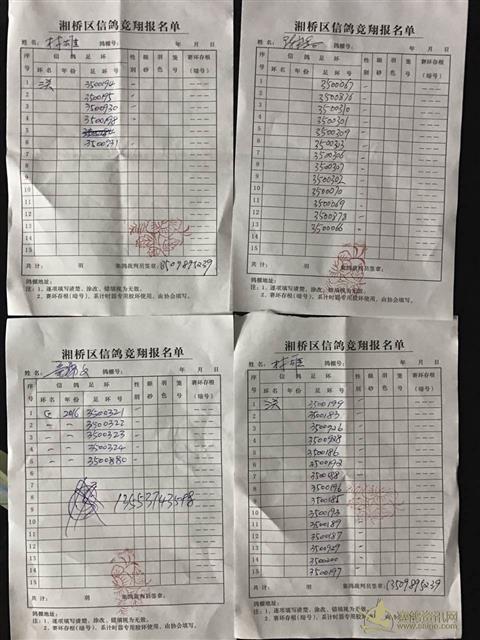 湘桥区信鸽竞翔报名单
姓名: 林雄 鸽棚号: 年 月 日
序号 信鸽足环 性别 眼砂 羽色 笼号 赛环存根
环名 年份 足环号 (缩号)
1 3500194
2 3500195
3 3500930
4 3500198
5
6 3500931
7
8
9
10
11
12
13
14
15
共计: 羽 集鸽裁判员签章:
鸽棚地址:
注:1、逐项填写清楚、涂改、错填视为无效。
2、赛环存根(缩号)、系计时器专用胶环使用。由协会填写。
湘桥区信鸽竞翔报名单
姓名: 鸽棚号: 年 月 日
序号 信鸽足环 性别 眼砂 羽色 笼号 赛环存根
环名 年份 足环号 (缩号)
1 3500067
2 3500876
3 3500310
4 3500301
5 3500309
6 3500303
7 3500306
8 3500307
9 3500302
10 3500070
11 3500069
12 3500878
13 3500066
14
15
共计: 羽 集鸽裁判员签章:
鸽棚地址:
注:1、逐项填写清楚、涂改、错填视为无效。
2、赛环存根(缩号)、系计时器专用胶环使用。由协会填写。
湘桥区信鸽竞翔报名单
姓名: 鸽棚号: 年 月 日
序号 信鸽足环 性别 眼砂 羽色 笼号 赛环存根
环名 年份 足环号 (缩号)
1 2016 3500321
2 3500322
3 3500323
4 3500324
5 3500880
6
7
8
9
10
11
12
13
14
15
共计: 羽 集鸽裁判员签章:
鸽棚地址:
注:1、逐项填写清楚、涂改、错填视为无效。
2、赛环存根(缩号)、系计时器专用胶环使用。由协会填写。
湘桥区信鸽竞翔报名单
姓名: 林雄 鸽棚号: 年 月 日
序号 信鸽足环 性别 眼砂 羽色 笼号 赛环存根
环名 年份 足环号 (缩号)
1 3500199
2 3500183
3 3500926
4 3500928
5 3500186
6 3500192
7
8 3500196
9
10 3500193
11 3500189
12 3500187
13 3500929
14 3500200
15 3500197
共计: 羽 集鸽裁判员签章: 13509895239
鸽棚地址:
注:1、逐项填写清楚、涂改、错填视为无效。
2、赛环存根(缩号)、系计时器专用胶环使用。由协会填写。